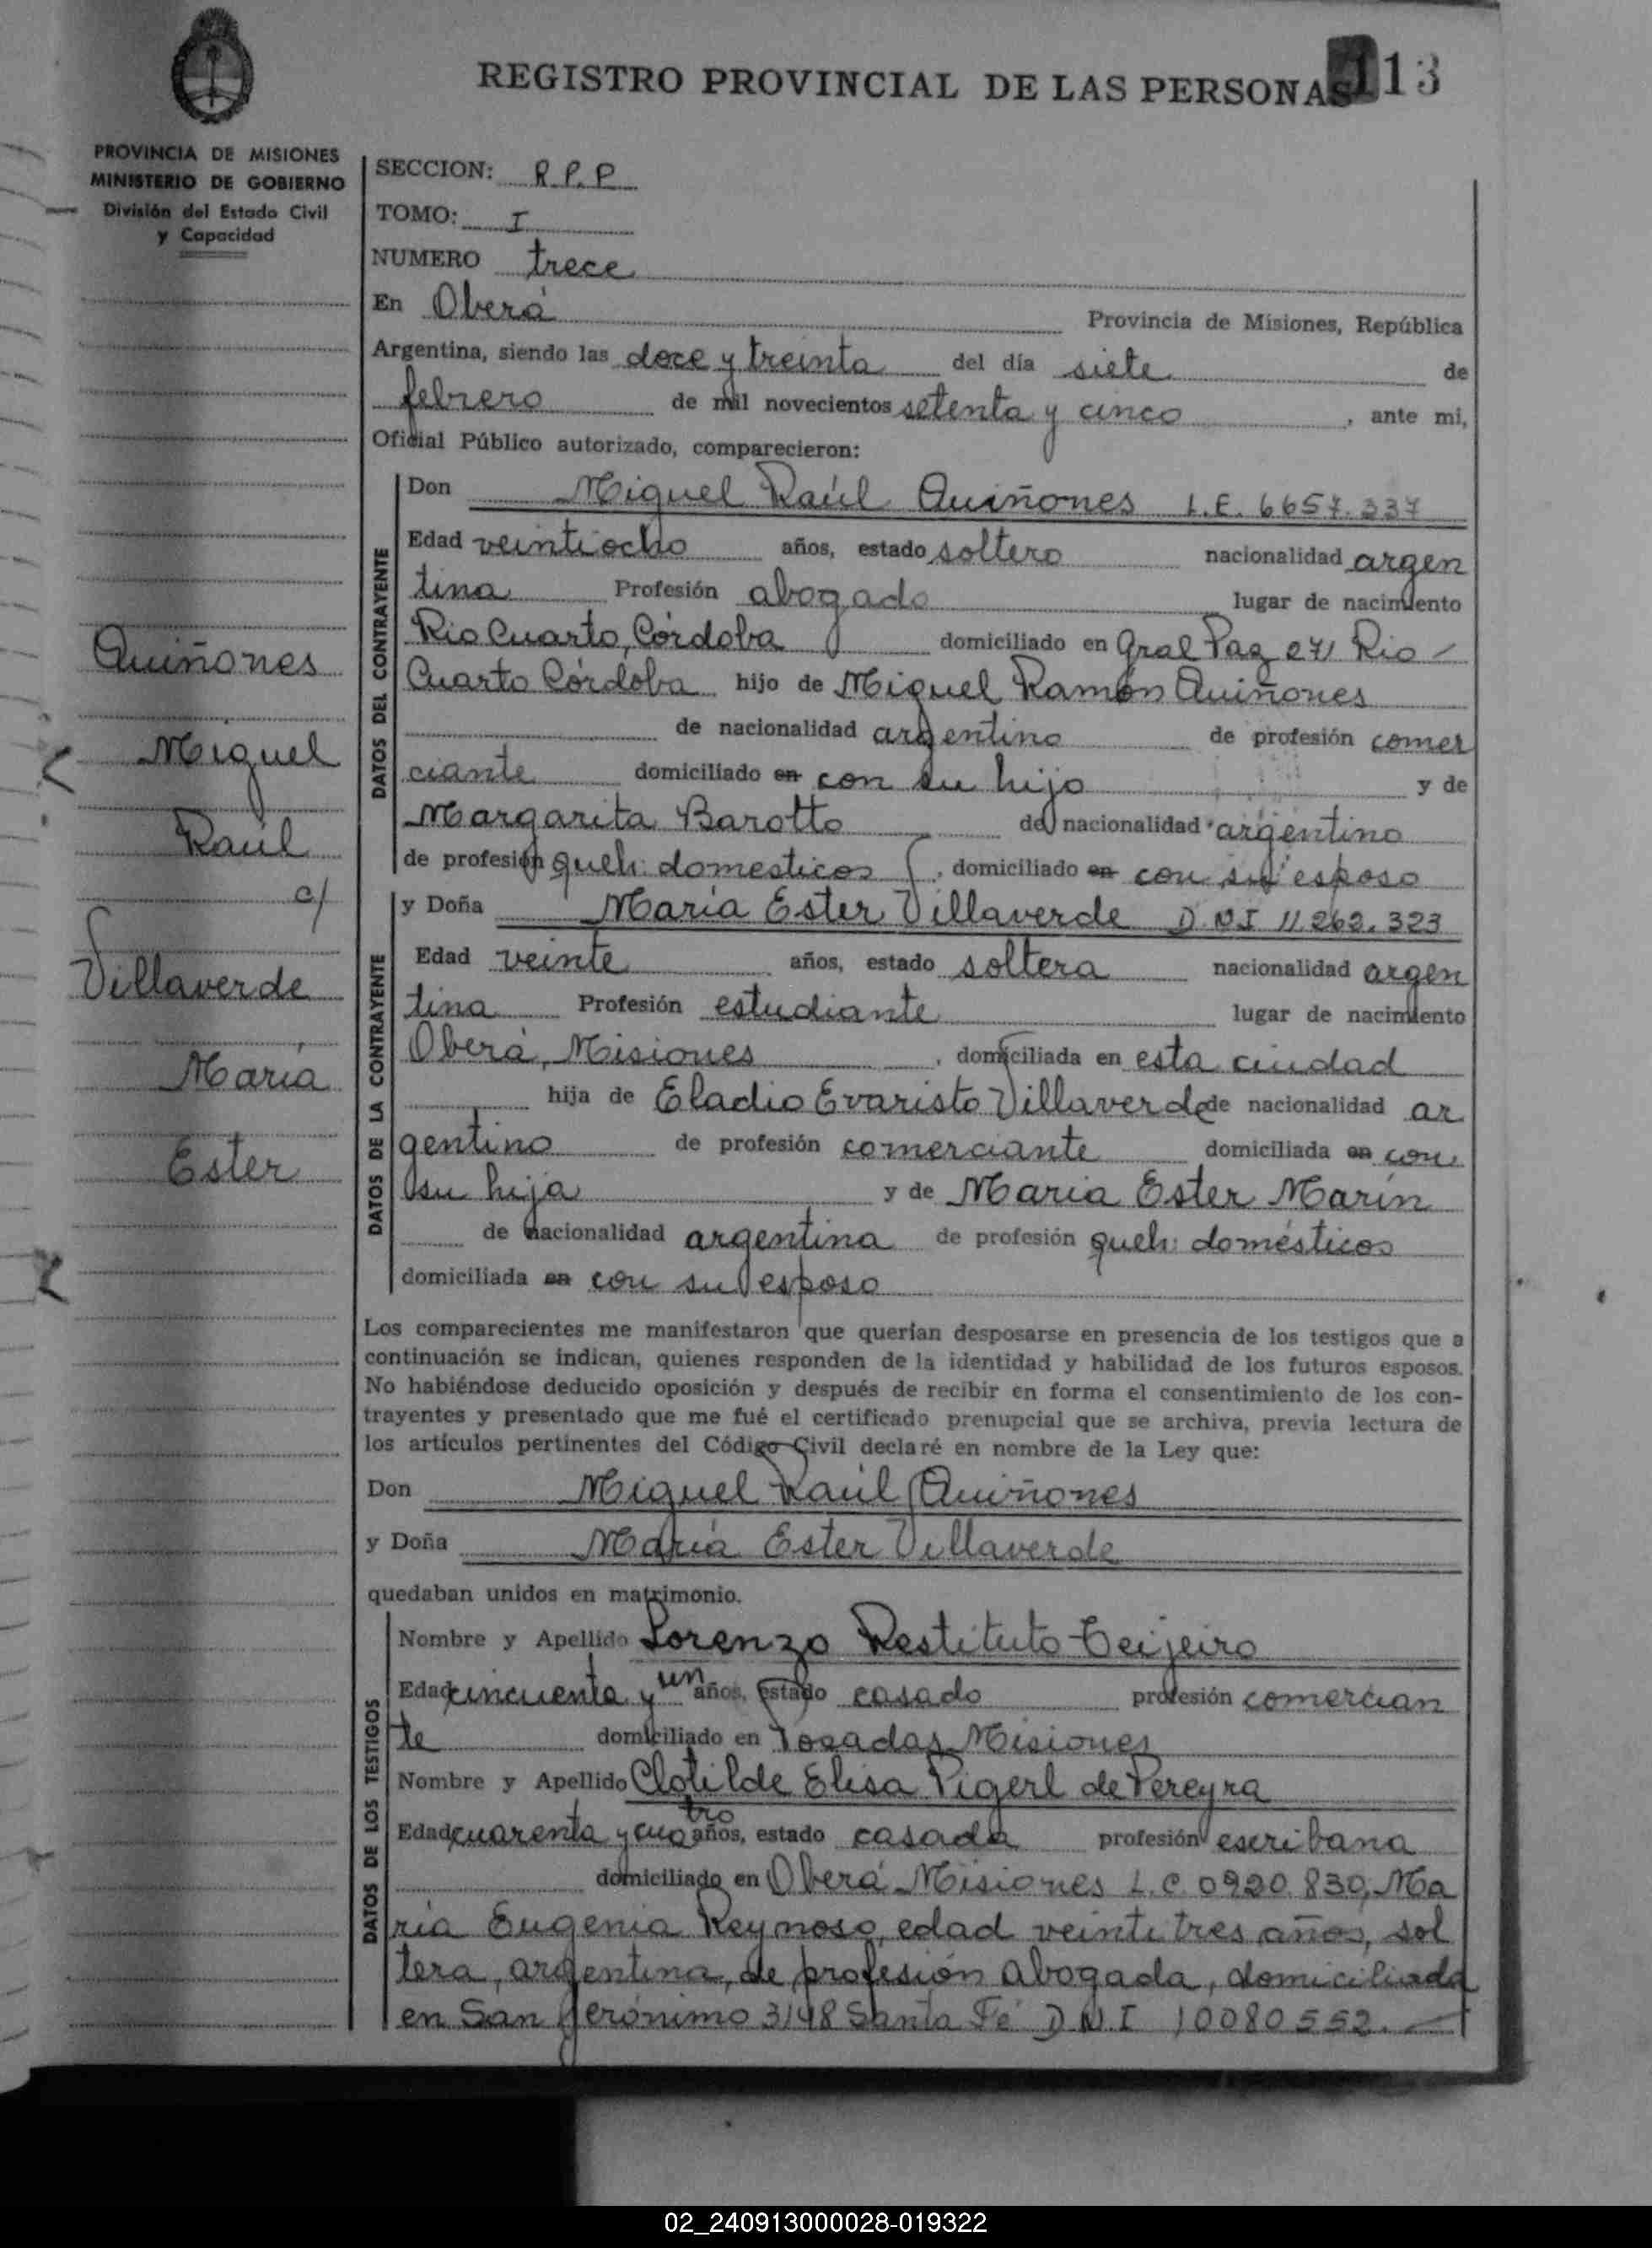 REGISTRO PROVINCIAL DE LAS PERSONAS 113
PROVINCIA DE MISIONES
MINISTERIO DE GOBIERNO
División del Estado Civil
y Capacidad
Quiñones
Miguel
Raúl
c/
Villaverde
María
Ester
SECCION: R.P.P
TOMO: I
NUMERO trece
En Oberá Provincia de Misiones, República
Argentina, siendo las doce y treinta del día siete de
febrero de mil novecientos setenta y cinco, ante mi,
Oficial Público autorizado, comparecieron:
DATOS DEL CONTRAYENTE
Don Miguel Raúl Quiñones L.E. 6657.337
Edad veintiocho años, estado soltero nacionalidad argen
tina Profesión abogado lugar de nacimiento
Rio Cuarto, Córdoba domiciliado en Gral Paz 271 Rio
Cuarto Córdoba hijo de Miguel Ramón Quiñones
de nacionalidad argentino de profesión comer
ciante domiciliado en con su hijo y de
Margarita Barotto de nacionalidad argentino
de profesión queh: domesticos, domiciliado en con su esposo
DATOS DE LA CONTRAYENTE
y Doña María Ester Villaverde D.N.I 11.262.323
Edad veinte años, estado soltera nacionalidad argen
tina Profesión estudiante lugar de nacimiento
Oberá, Misiones, domiciliada en esta ciudad
hija de Eladio Evaristo Villaverde de nacionalidad ar
gentino de profesión comerciante domiciliada en con
su hija y de Maria Ester Marín
de nacionalidad argentina de profesión queh: domésticos
domiciliada en con su esposo
Los comparecientes me manifestaron que querían desposarse en presencia de los testigos que a
continuación se indican, quienes responden de la identidad y habilidad de los futuros esposos.
No habiéndose deducido oposición y después de recibir en forma el consentimiento de los con-
trayentes y presentado que me fué el certificado prenupcial que se archiva, previa lectura de
los artículos pertinentes del Código Civil declaré en nombre de la Ley que:
Don Miguel Raúl Quiñones
y Doña María Ester Villaverde
quedaban unidos en matrimonio.
DATOS DE LOS TESTIGOS
Nombre y Apellido Lorenzo Restituto Teijeiro
Edad cincuenta y un años, estado casado profesión comercian
te domiciliado en Posadas Misiones
Nombre y Apellido Clotilde Elisa Pigerl de Pereyra
Edad cuarenta y cuatro años, estado casada profesión escribana
domiciliado en Oberá Misiones L.C. 0920.830, Ma
ría Eugenia Reynoso, edad veintitres años, sol
tera, argentina, de profesión abogada, domiciliada
en San Jerónimo 3148 Santa Fé D N I 10080552.
02_240913000028-019322